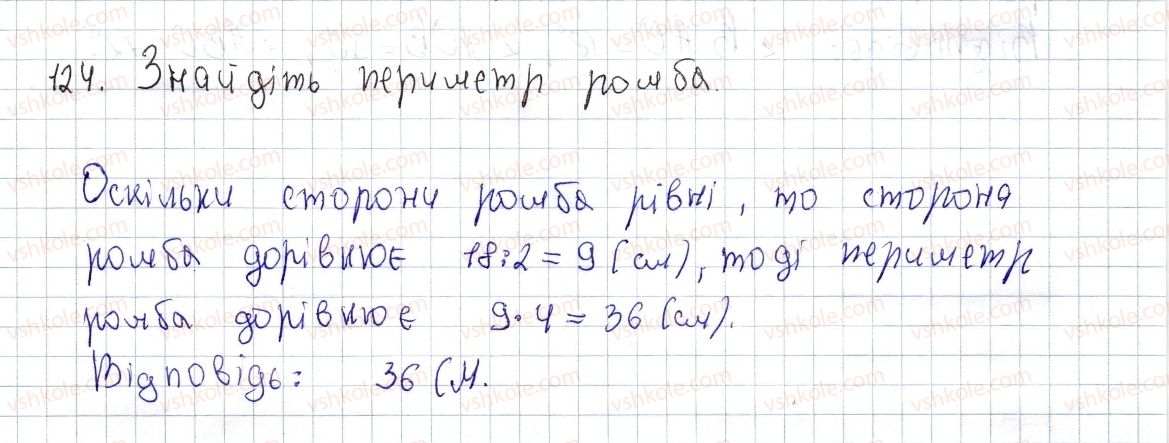 124. Знайдіть периметр ромба.
Оскільки сторони ромба рівні, то сторона
ромба дорівнює 18:2 = 9 (см), тоді периметр
ромба дорівнює 9·4 = 36 (см).
Відповідь: 36 см.